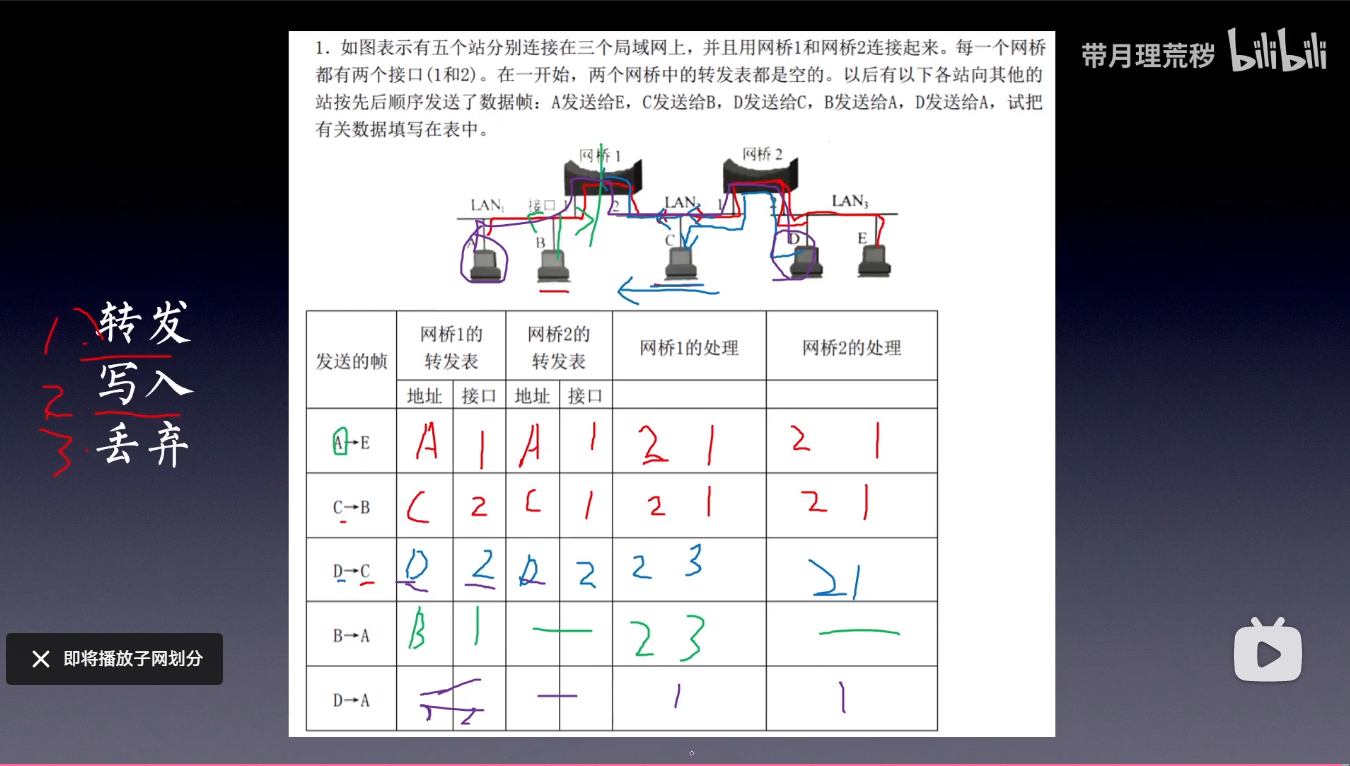 带月理荒秽 bilibili
1. 如图表示有五个站分别连接在三个局域网上，并且用网桥1和网桥2连接起来。每一个网桥
都有两个接口(1和2)。在一开始，两个网桥中的转发表都是空的。以后有以下各站向其他的
站按先后顺序发送了数据帧：A发送给E，C发送给B，D发送给C，B发送给A，D发送给A，试把
有关数据填写在表中。
网桥1 网桥2
LAN1 接口 2 LAN2 1 2 LAN3
A B C D E
发送的帧 网桥1的转发表 网桥2的转发表 网桥1的处理 网桥2的处理
地址 接口 地址 接口
A→E A 1 A 1 2 1 2 1
C→B C 2 C 1 2 1 2 1
D→C D 2 D 2 2 3 2 1
B→A B 1 — 2 3 —
D→A — 1 1
1 转发
2 写入
3 丢弃
即将播放子网划分